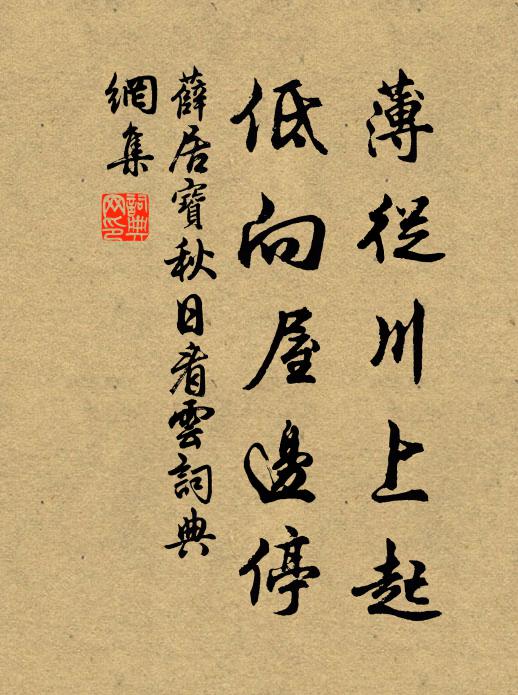 薄從川上起
低向屋邊停
薛居寶秋日看雲詞典
網集
詞典
网印